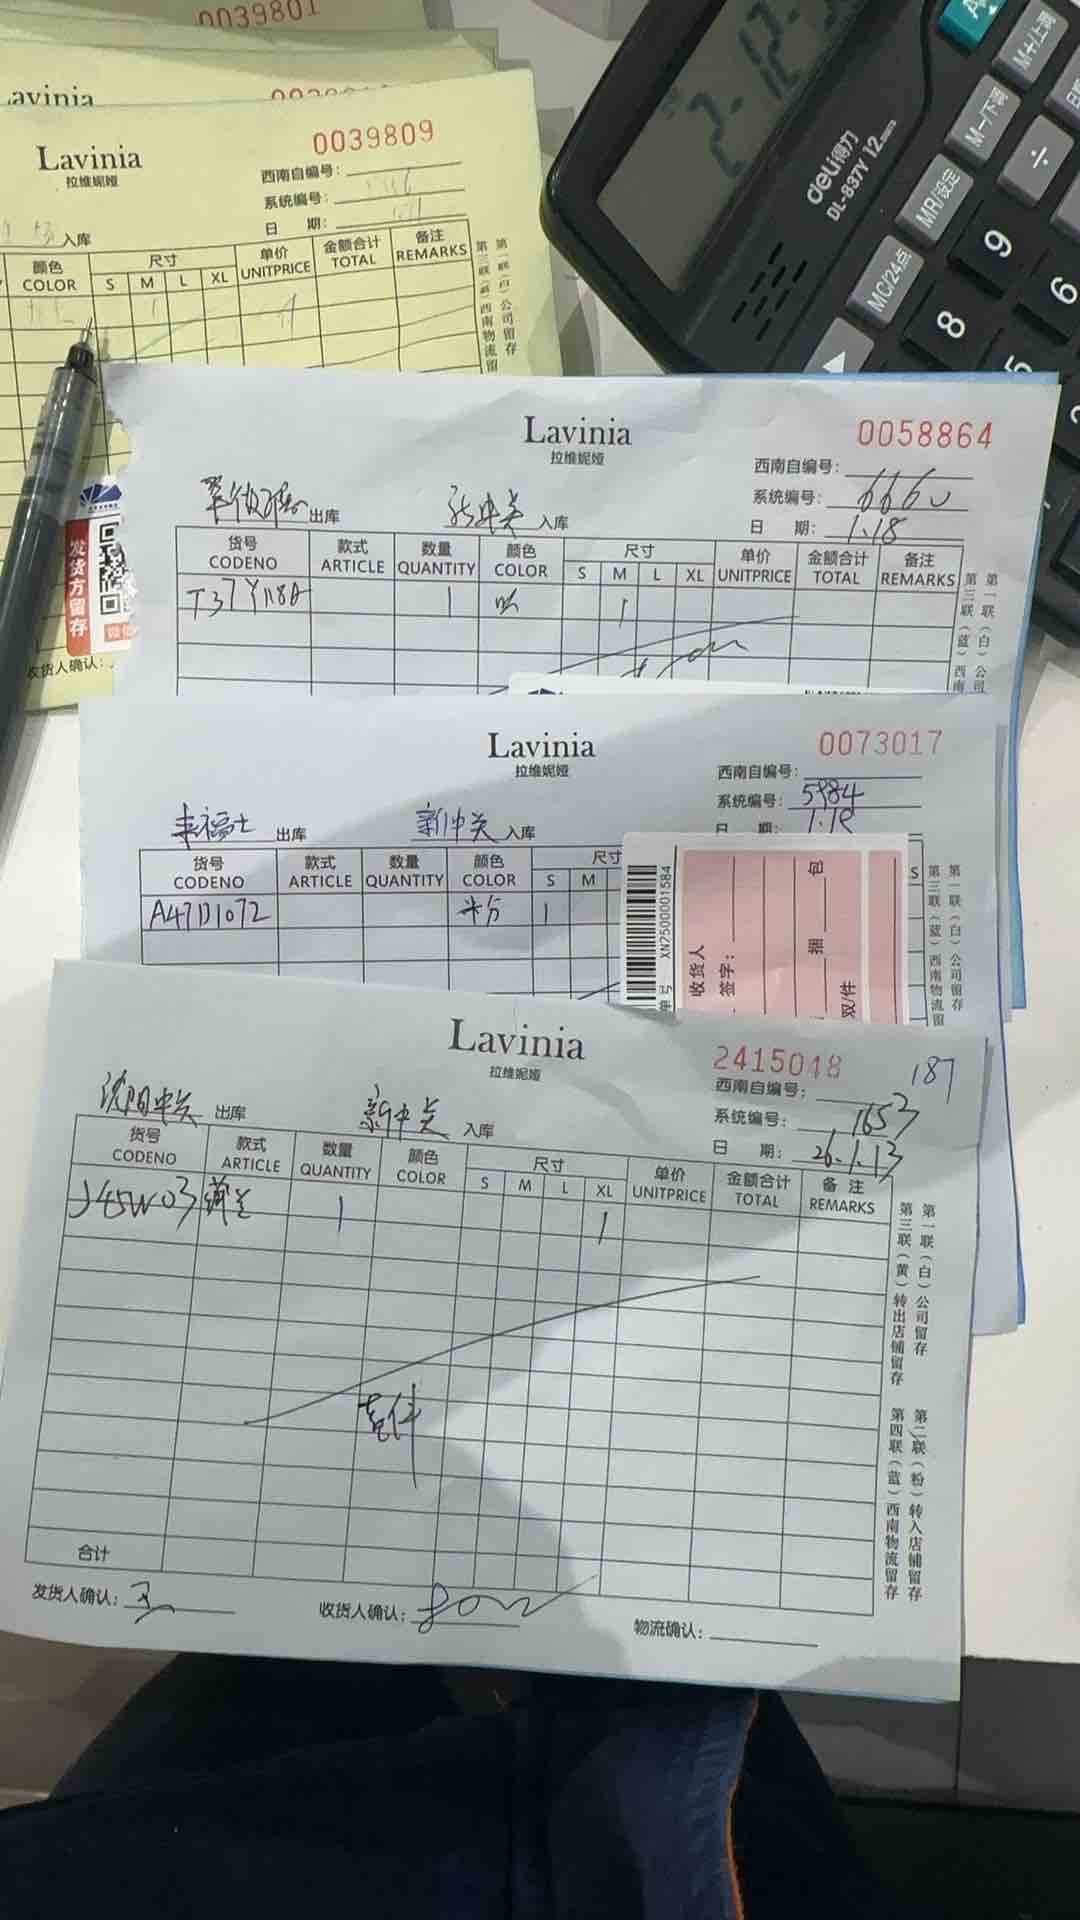 0039801
avinia
Lavinia
拉维妮娅
0039809
西南自编号:
系统编号:
日 期:
入库
颜色 COLOR
尺寸
S M L XL
单价 UNITPRICE
金额合计 TOTAL
备注 REMARKS
第一联(白)公司留存
第三联(蓝)西南物流留
deli得力
DL-837Y 12
M+/上调
M-/下调
MR/设定
MC/24点
÷
9
8
6
5
发货方留存
收货人确认:
Lavinia
拉维妮娅
0058864
西南自编号:
系统编号: 6660
日 期: 1.18
出库 新中关 入库
货号 CODENO
款式 ARTICLE
数量 QUANTITY
颜色 COLOR
尺寸
S M L XL
单价 UNITPRICE
金额合计 TOTAL
备注 REMARKS
T37Y118A 1 1
第一联(白)公司
第三联(蓝)西南
Lavinia
拉维妮娅
0073017
西南自编号:
系统编号: 5984
日 期: 1.18
来福士 出库 新中关 入库
货号 CODENO
款式 ARTICLE
数量 QUANTITY
颜色 COLOR
尺寸
S M
S
A47D1072 1
XN2500001584
收货人
签字:
包
捆
双/件
单号
第一联(白)公司留存
第三联(蓝)西南物流留
Lavinia
拉维妮娅
2415048
187
西南自编号:
系统编号: 1653
日 期: 26.1.13
沈阳中关 出库 新中关 入库
货号 CODENO
款式 ARTICLE
数量 QUANTITY
颜色 COLOR
尺寸
S M L XL
单价 UNITPRICE
金额合计 TOTAL
备注 REMARKS
J45W03 1 1
壹件
合计
发货人确认: 收货人确认: 物流确认:
第一联(白)公司留存
第三联(黄)转出店铺留存
第二联(粉)转入店铺留存
第四联(蓝)西南物流留存